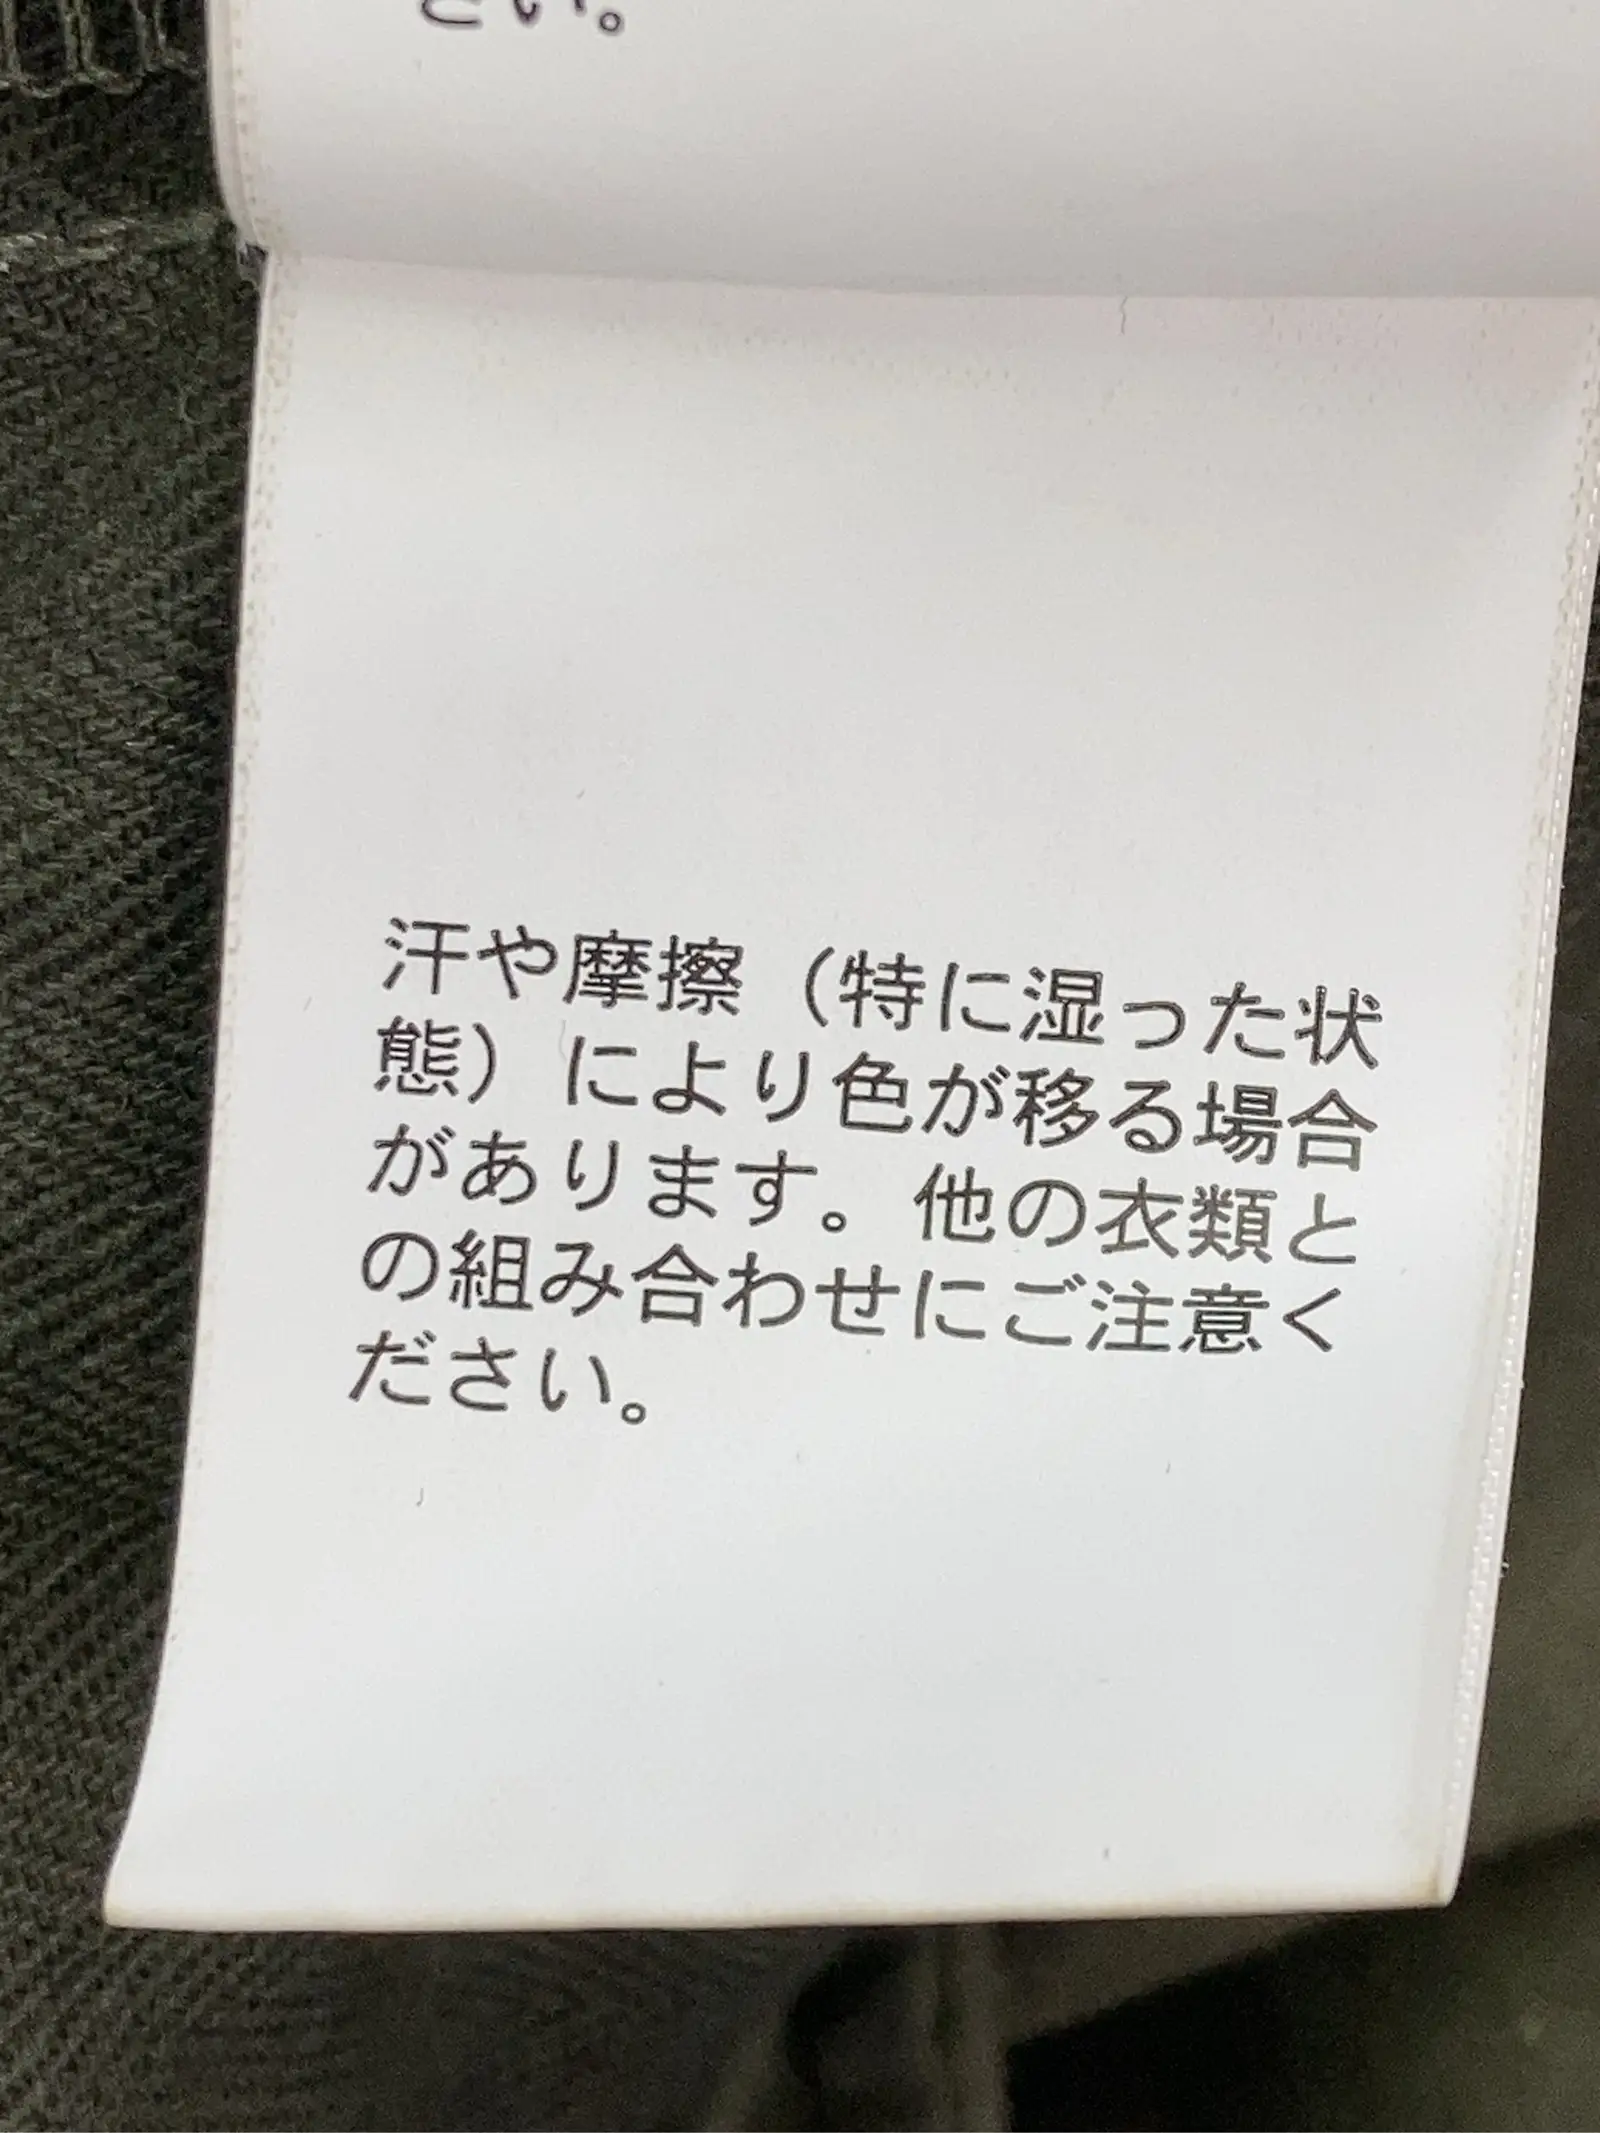 さい。
汗や摩擦（特に湿った状
態）により色が移る場合
があります。他の衣類と
の組み合わせにご注意く
ださい。